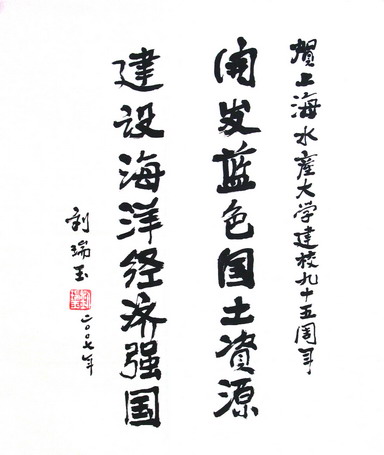 賀上海水產大学建校九十五周年
開发蓝色国土資源
建设海洋经济强国
刘瑞玉
二〇〇七年